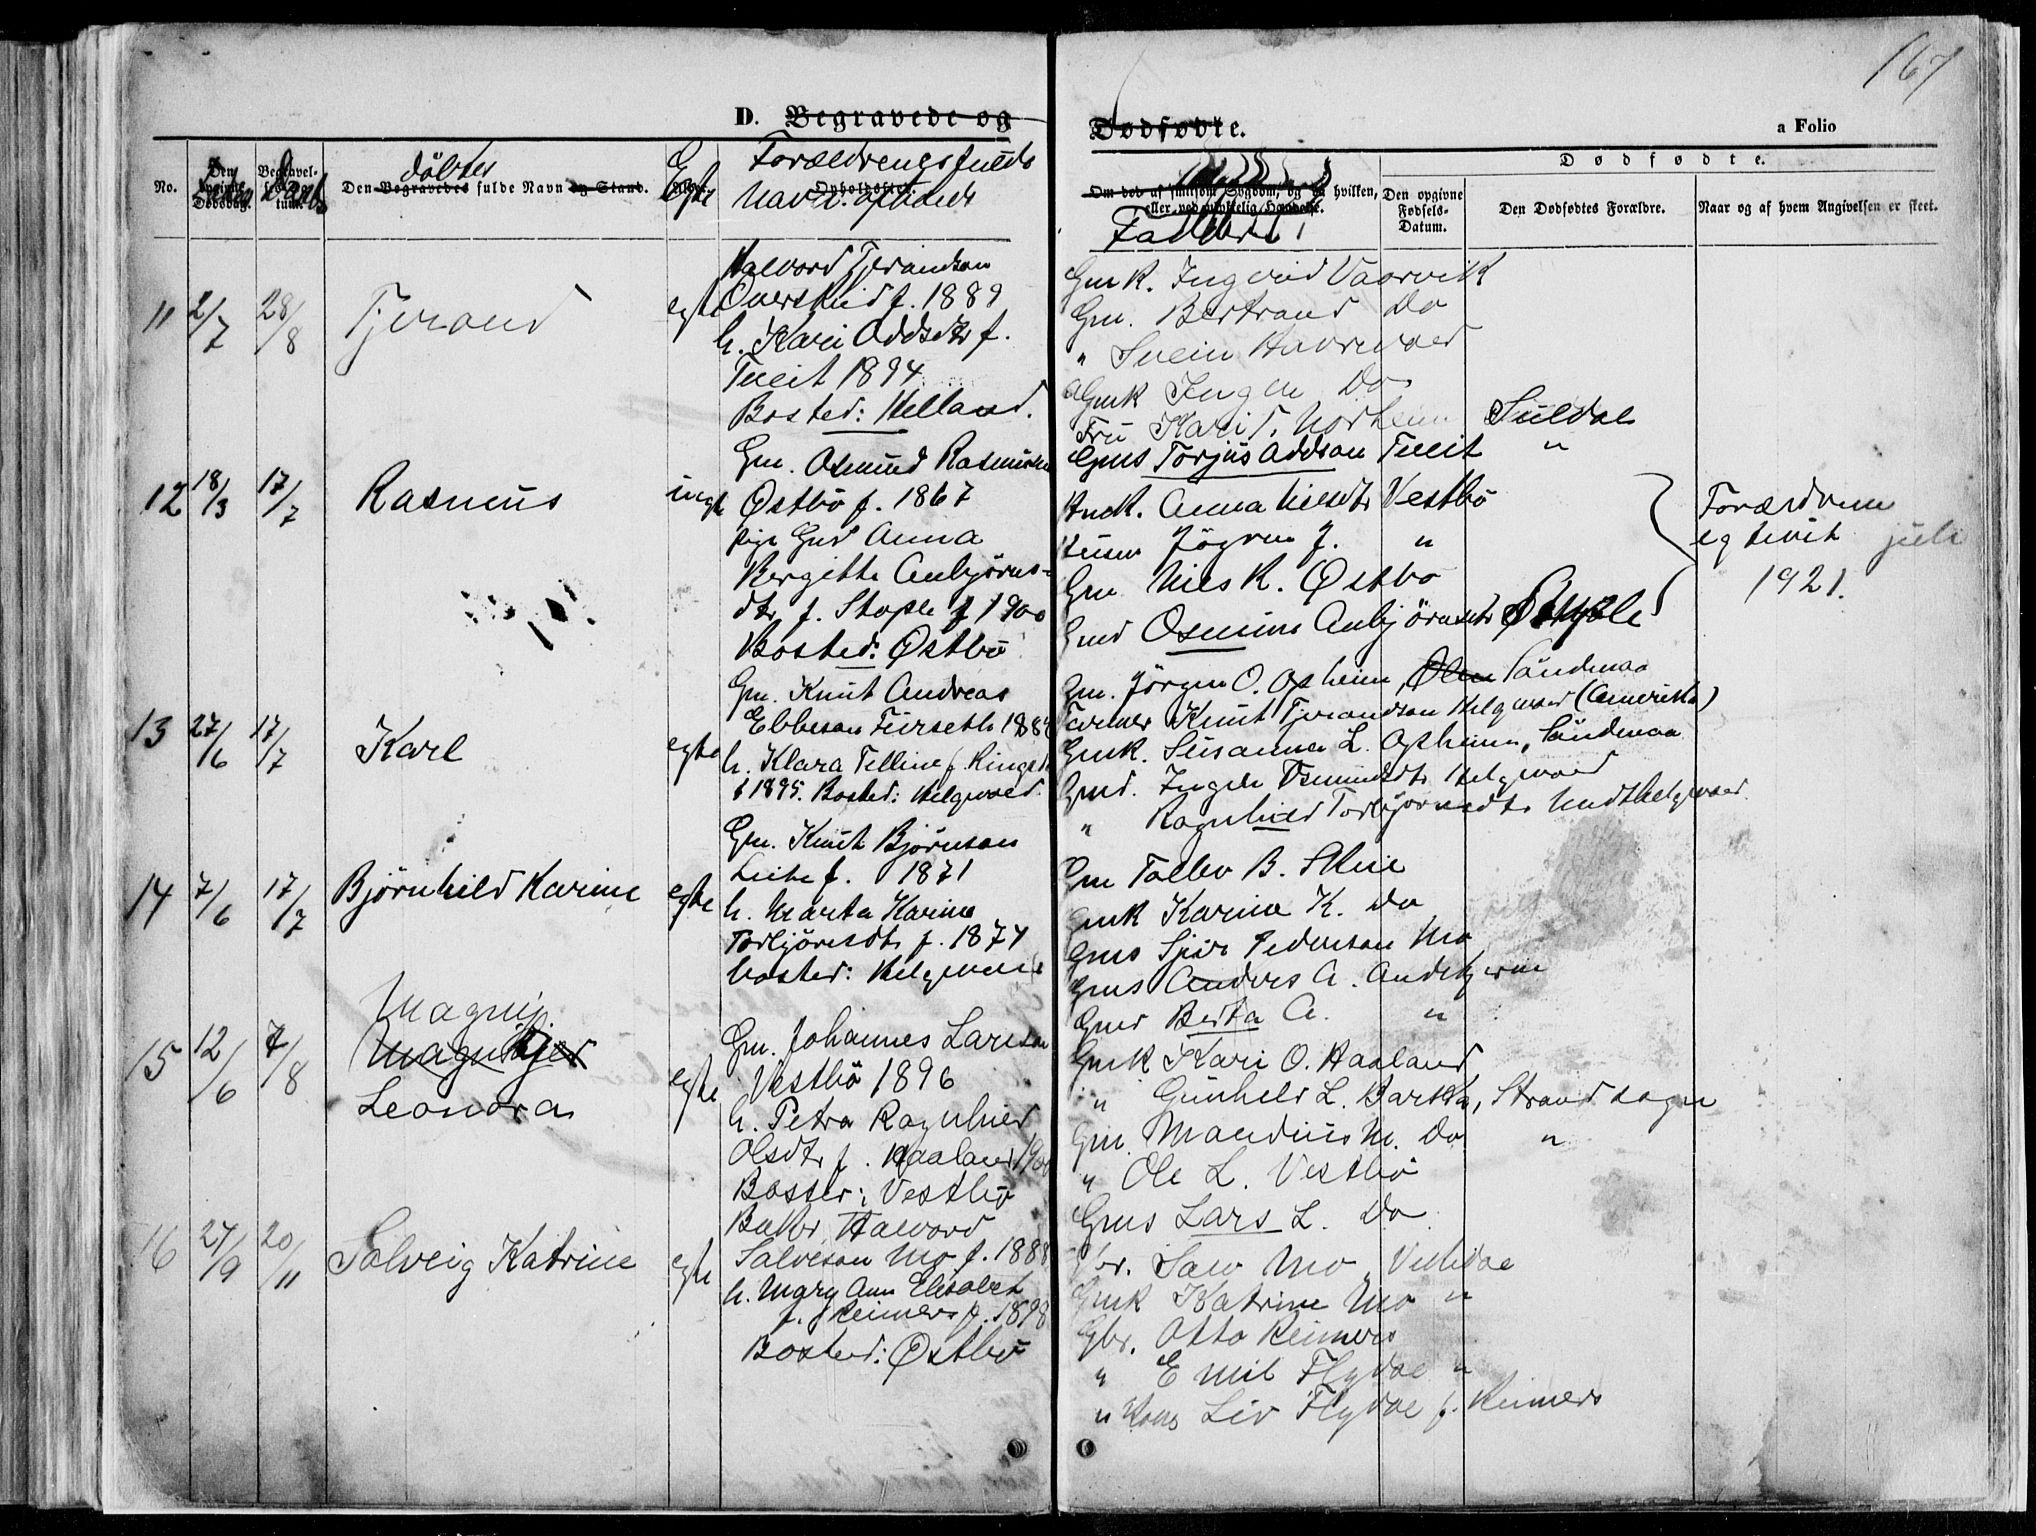 167
D. Begravede og Dødfødte.
a Folio
No.
Den opgivne Dødsdag.
Begravelses-Datum.
Daab
Den Begravedes fulde Navn og Stand.
døbtes
Egte
Opholdssted.
Forældrenes fulde
Navn
Om død af smitsom Sygdom, og da hvilken,
eller ved ulykkelig Hændelse.
Faddere
Den opgivne Fødsels-Datum.
Dødfødte.
Den Dødfødtes Forældre.
Naar og af hvem Angivelsen er skeet.
11 2/7 28/8 Tjerand egte
Halvord Tjerandson
Overskeid f. 1889
h. Kari Oddsdtr f.
Tveit 1894
Bosted: Helland.
Gmk. Ingerid Vaarvik
Gm. Bertrand Do
" Svein Havrevoed
Gmk Inger Do
Fru Kari T. Norheim Suldal
Gms Torjus Addson Tveit "
12 18/3 17/7 Rasmus uegte
Gm. Osmund Rasmusen
Østbø f. 1867
pige Gmd Anna
Bergitte Anbjørns-
dtr f. Stople f 1900
Bosted: Østbø
Gmk. Anna Nilsdtr Vestbø
Jögren J. "
Gm Nils R. Østbø
Gmd Osmine Anbjörnsdtr Stople
Forældrene
egteviet juli
1921.
13 27/6 17/7 Karl egte
Gm. Knut Andreas
Ebbeson Furseth 188
h. Klara Telline f. Ringed
f 1895. Bosted: Helgevoed.
Gm. Jörgen O. Opheim, Ølen Sandenaa
Farmer Knut Tjerandson Helgevoed (Amerika)
Gmk. Susanna L. Opheim, Sandenaa
Gmd. Inger Osmundsdtr Helgevoed
" Ragnhild Torbjørnsdtr Nedthelgevoed
14 7/6 17/7 Bjørnhild Karine egte
Gm. Knut Bjørnson
Leite f. 1871
h. Marta Karine
Torbjörnsdtr f. 1874
bosted: Helgevoed
Gm Tallev B. Skeie
Gmk Karine K. Do
Gms Sjur Pederson Mo
Gms Anders A.
Gmd Berta A. "
15 12/6 7/8 Magny
Leonora egte
Gm. Johannes Larson
Vestbø 1896
h. Petra Ragnhild
Olsdtr f. Haaland 1900
Bosted: Vestbø
Gmk Kari O. Haaland
" Gunhild L. Barka, Strandsogn
Gm. Mandius M. Do "
" Ole L. Vestbø
Gms Lars L. Do
16 27/9 20/11 Solveig Katrine egte
Halvord
Salveson Mo f. 1888
h. Mary Ann Elisabet
f. Reimers f. 1898
Bosted: Østbø
Gbr. Salv Mo, Vikedal
Gmk Katrine Mo "
Gbr. Otto Reimers
" Emil Flydal "
" Kone Liv Flydal f. Reimers